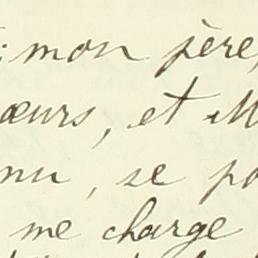 : mon père,
œurs, et M
nu, se po
me charge